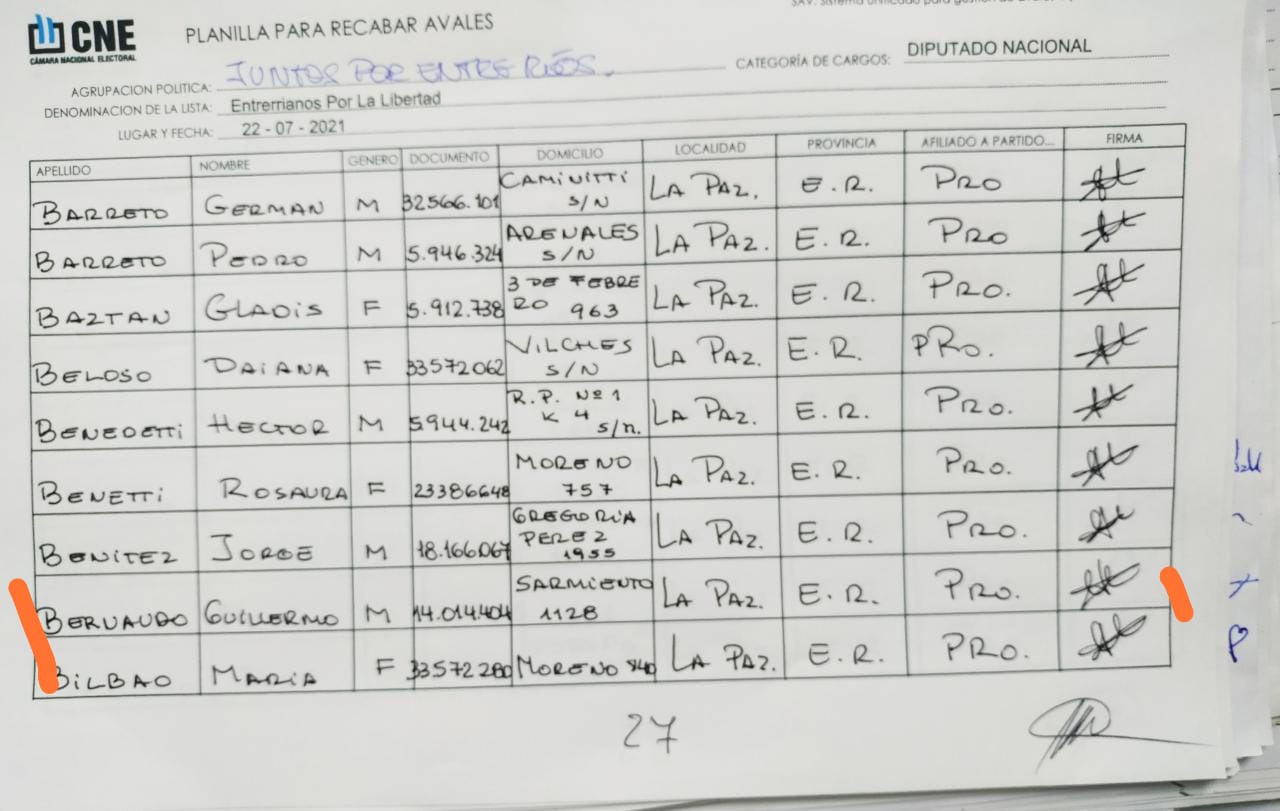 CNE
CÁMARA NACIONAL ELECTORAL
PLANILLA PARA RECABAR AVALES
AGRUPACION POLITICA: JUNTOS POR ENTRE RIÓS.
CATEGORÍA DE CARGOS: DIPUTADO NACIONAL
DENOMINACION DE LA LISTA: Entrerrianos Por La Libertad
LUGAR Y FECHA: 22 - 07 - 2021
APELLIDO NOMBRE GENERO DOCUMENTO DOMICILIO LOCALIDAD PROVINCIA AFILIADO A PARTIDO... FIRMA
BARRETO GERMAN M 32566.101 CAMINITTI S/N LA PAZ. E.R. PRO
BARRETO PEDRO M 5.946.324 ARENALES S/N LA PAZ. E.R. PRO
BAZTAN GLADIS F 5.912.738 3 DE FEBRERO 963 LA PAZ. E.R. PRO.
BELOSO DAIANA F 33572062 VILCHES S/N LA PAZ. E.R. PRO.
BENEDETTI HECTOR M 5.944.242 R.P. Nº 1 K 4 S/n. LA PAZ. E.R. PRO.
BENETTI ROSAURA F 23386648 MORENO 757 LA PAZ. E.R. PRO.
BENITEZ JORGE M 18.166.067 GREGORIA PEREZ 1955 LA PAZ. E.R. PRO.
BERVAUDO GUILLERMO M 14.014.404 SARMIENTO 1128 LA PAZ. E.R. PRO.
BILBAO MARIA F 33572280 MORENO 840 LA PAZ. E.R. PRO.
27